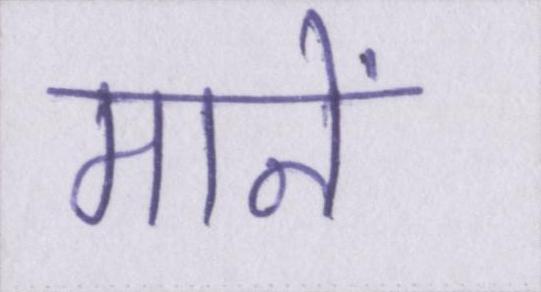 मानें